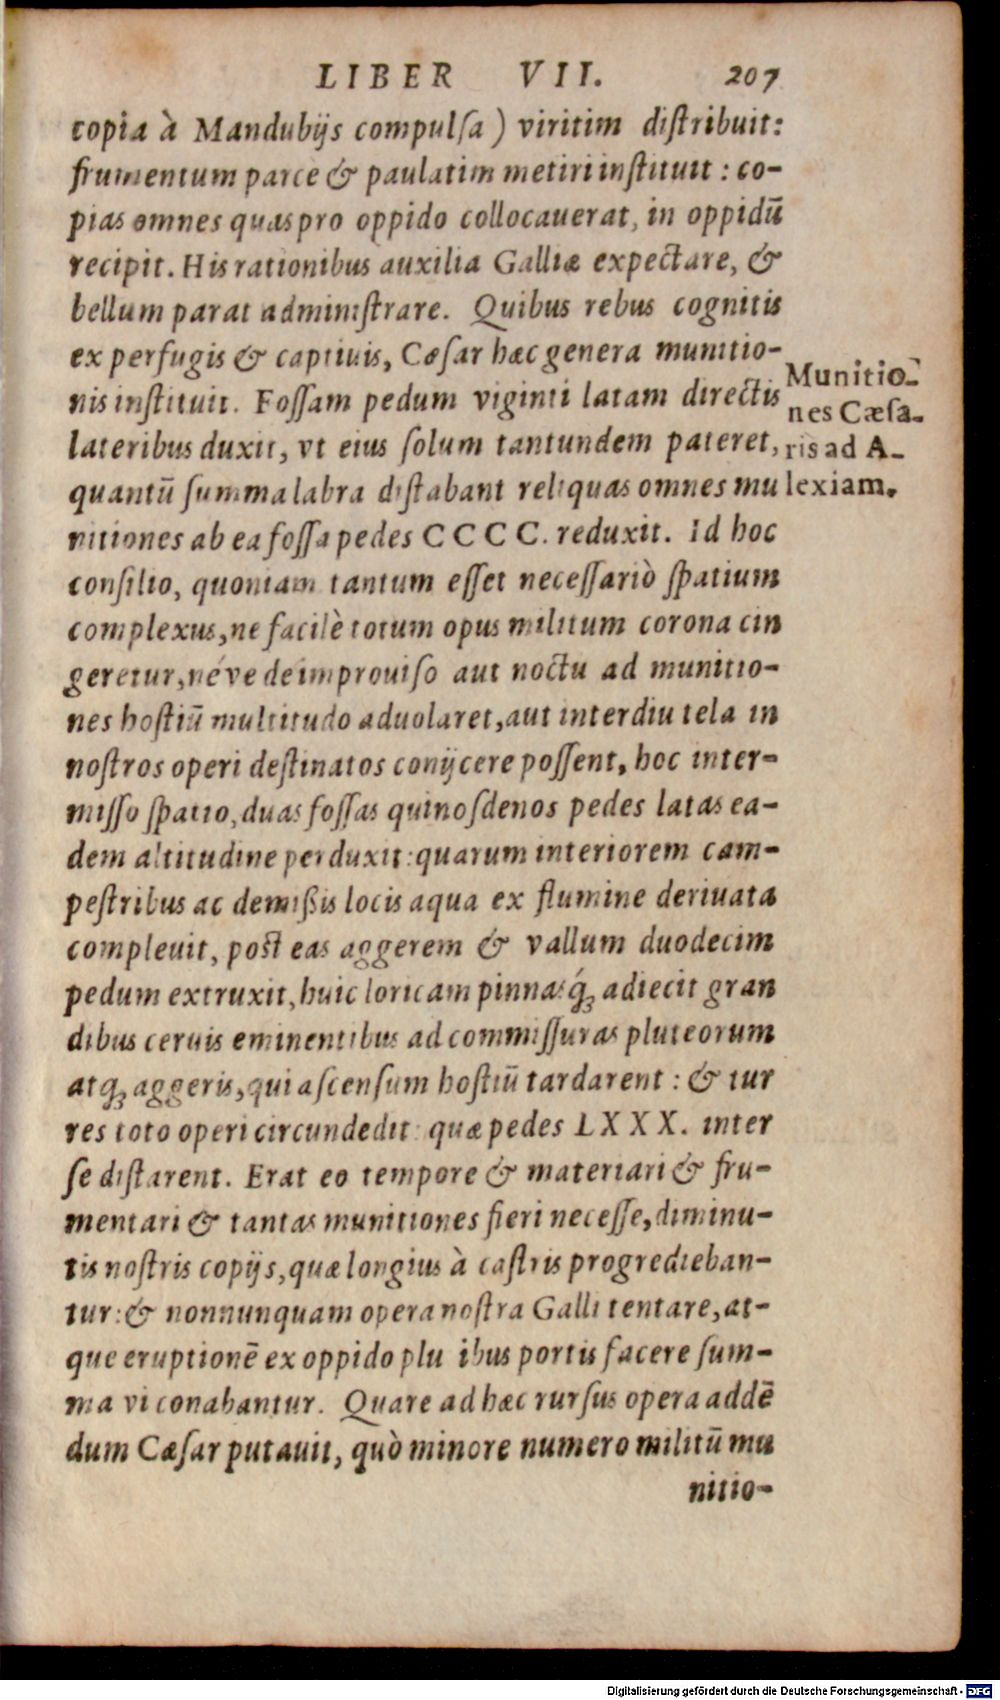 LIBER VII. 207
copia à Mandubijs compulsa) viritim distribuit:
frumentum parce & paulatim metiri instituit: co-
pias omnes quas pro oppido collocauerat, in oppidū
recipit. His rationibus auxilia Galliæ expectare, &
bellum parat administrare. Quibus rebus cognitis
ex perfugis & captiuis, Cæsar hæc genera munitio-
nis instituit. Fossam pedum viginti latam directis
lateribus duxit, vt eius solum tantundem pateret,
quantū summa labra distabant reliquas omnes mu
nitiones ab ea fossa pedes CCCC. reduxit. Id hoc
consilio, quoniam tantum esset necessariò spatium
complexus, ne facilè totum opus militum corona cin
geretur, néve de improuiso aut noctu ad munitio-
nes hostiū multitudo aduolaret, aut interdiu tela in
nostros operi destinatos conijcere possent, hoc inter-
misso spatio, duas fossas quinosdenos pedes latas ea-
dem altitudine perduxit: quarum interiorem cam-
pestribus ac demißis locis aqua ex flumine deriuata
compleuit, post eas aggerem & vallum duodecim
pedum extruxit, huic loricam pinnasq́; adiecit gran
dibus ceruis eminentibus ad commissuras pluteorum
atq; aggeris, qui ascensum hostiū tardarent: & tur
res toto operi circundedit: quæ pedes LXXX. inter
se distarent. Erat eo tempore & materiari & fru-
mentari & tantas munitiones fieri necesse, diminu-
tis nostris copijs, quæ longius à castris progredieban-
tur: & nonnunquam opera nostra Galli tentare, at-
que eruptionē ex oppido plu ibus portis facere sum-
ma vi conabantur. Quare ad hæc rursus opera addē
dum Cæsar putauit, quò minore numero militū mu
nitio-
Munitio-
nes Cæsa-
ris ad A-
lexiam.
Digitalisierung gefördert durch die Deutsche Forschungsgemeinschaft - DFG